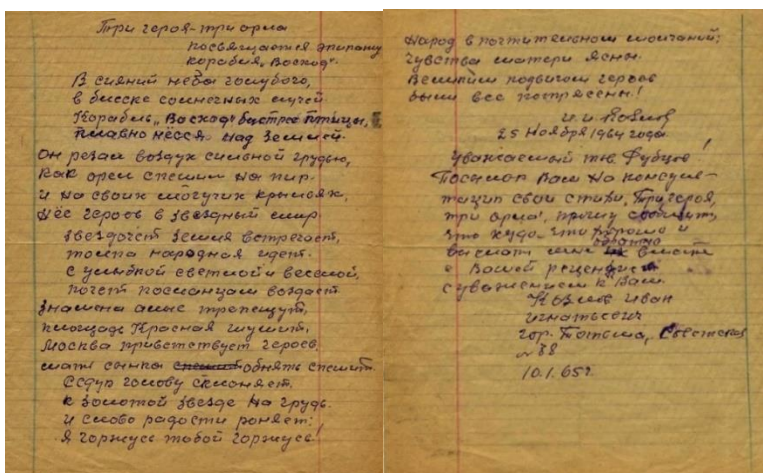 Три героя-три орла
посвящается экипажу
корабля „Восход".
В сияний неба голубого,
в блеске солнечных лучей
Корабль „Восход" быстрее птицы,
плавно нёсся над Землей.
Он резал воздух сильной грудью,
как орел спешил на пир
и на своих могучих крыльях,
Нёс героев в звездный мир
Звездочёт Земля встречает,
толпа народная идет.
с улыбкой светлой и веселой,
почет посланцам воздает
Знамена алые трепещут,
площадь Красная шумит,
Москва приветствует героев
мать сынка спешит обнять спешит.
Седую голову склоняет,
к золотой звезде на грудь.
и слово радости роняет:
Я горжусь тобой горжусь!
Народ в почтительном молчаний;
чувства матери ясны.
Великим подвигом героев
были все потрясены!
И. И. Козлов
25 Ноября 1964 года.
Уважаемый тов !
Посылаю Вам на консуль-
тацию свои стихи, „Три героя,
три орла", прошу сообщить,
что худо- что хорошо и
выслать мне обратно вместе
с Вашей рецензией
с уважением к Вам.
Козлов Иван
Игнатьевич
гор. Тотьма, Советская
№ 38
10.1.65г.